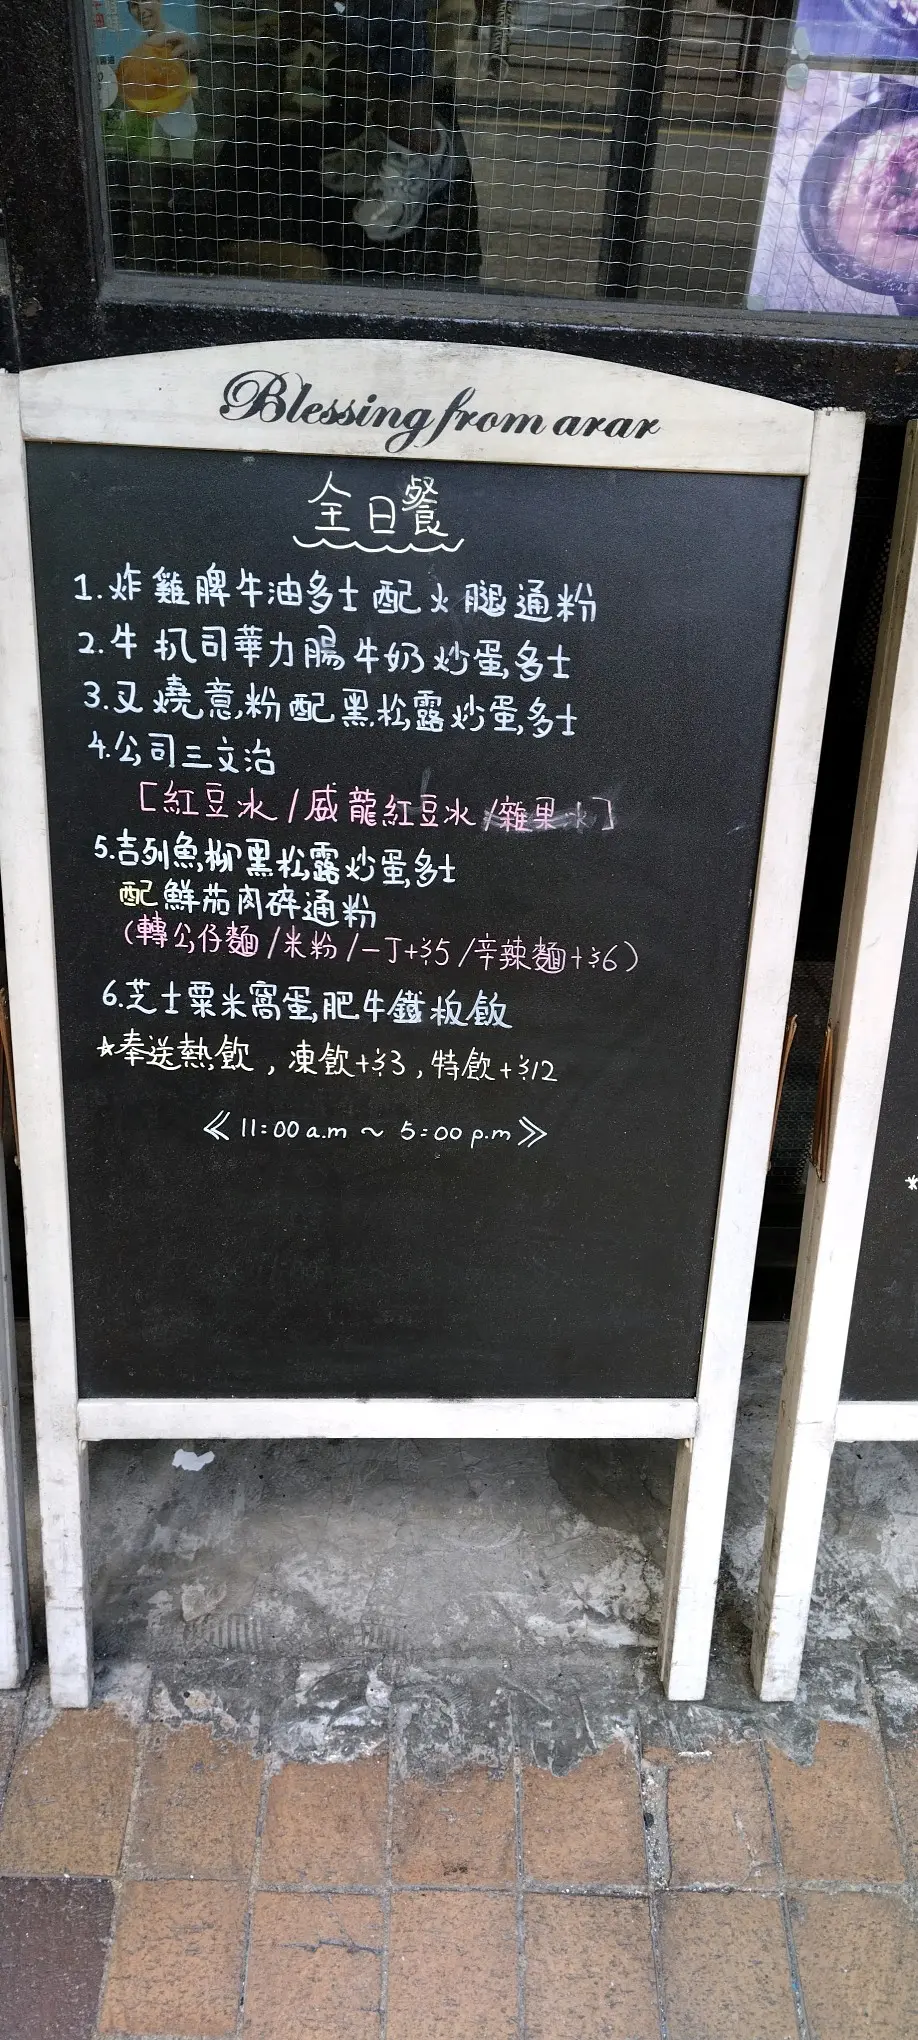 Blessing from arar
全日餐
1.炸雞脾牛油多士配火腿通粉
2.牛扒司華力腸牛奶炒蛋多士
3.叉燒意粉配黑松露炒蛋多士
4.公司三文治
[紅豆冰/威龍紅豆冰/雜果冰]
5.吉列魚柳黑松露炒蛋多士
配鮮茄肉碎通粉
(轉公仔麵/米粉/一丁+$5/辛辣麵+$6)
6.芝士粟米窩蛋肥牛鐵板飯
★奉送熱飲,凍飲+$3,特飲+$12
《11:00a.m ~ 5:00 p.m》